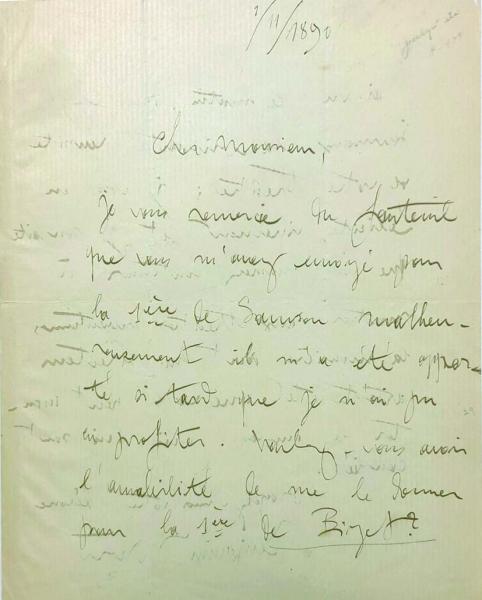 1/11/1890
Cher Monsieur,
Je vous remercie du fauteuil
que vous m'avez envoyé pour
la 1ère de Samson malheu-
reusement il m'a été appor-
té si tard que je n'ai pu
en profiter. Voulez-vous avoir
l'amabilité de me le donner
pour la 1ère de Bizet?